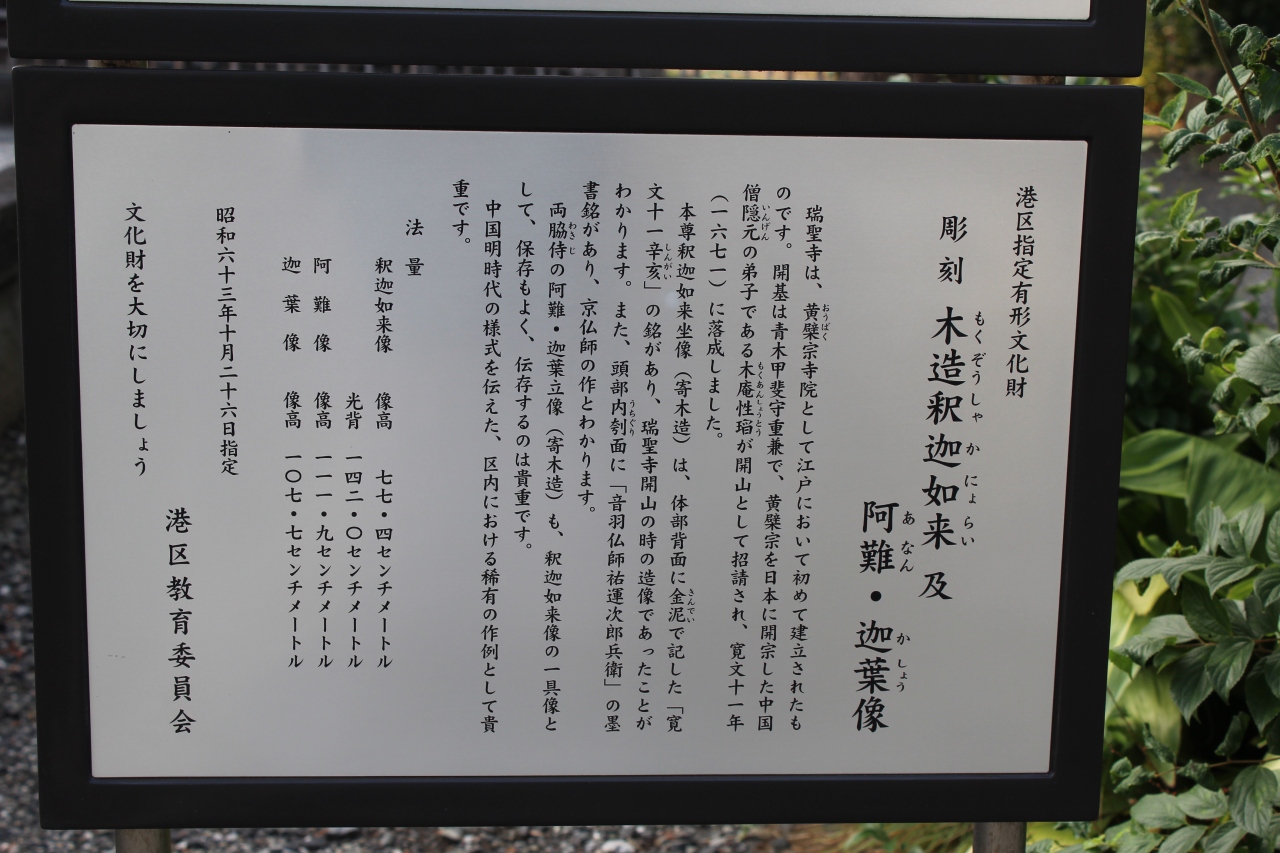 港区指定有形文化財
彫刻 木造釈迦如来及
もくぞうしゃかにょらい
阿難・迦葉像
あなん かしょう
瑞聖寺は、黄檗宗寺院として江戸において初めて建立されたも
おうばく
のです。開基は青木甲斐守重兼で、黄檗宗を日本に開宗した中国
僧隠元の弟子である木庵性瑫が開山として招請され、寛文十一年
いんげん もくあんしょうとう
(一六七一)に落成しました。
本尊釈迦如来坐像(寄木造)は、体部背面に金泥で記した「寛
きんでい
文十一辛亥」の銘があり、瑞聖寺開山の時の造像であったことが
しんがい
わかります。また、頭部内刳面に「音羽仏師祐運次郎兵衛」の墨
うちぐり
書銘があり、京仏師の作とわかります。
両脇侍の阿難・迦葉立像(寄木造)も、釈迦如来像の一具像と
わきじ
して、保存もよく、伝存するのは貴重です。
中国明時代の様式を伝えた、区内における稀有の作例として貴
重です。
法量
釈迦如来像 像高 七七・四センチメートル
光背 一四二・〇センチメートル
阿難像 像高 一一一・九センチメートル
迦葉像 像高 一〇七・七センチメートル
昭和六十三年十月二十六日指定
港区教育委員会
文化財を大切にしましょう